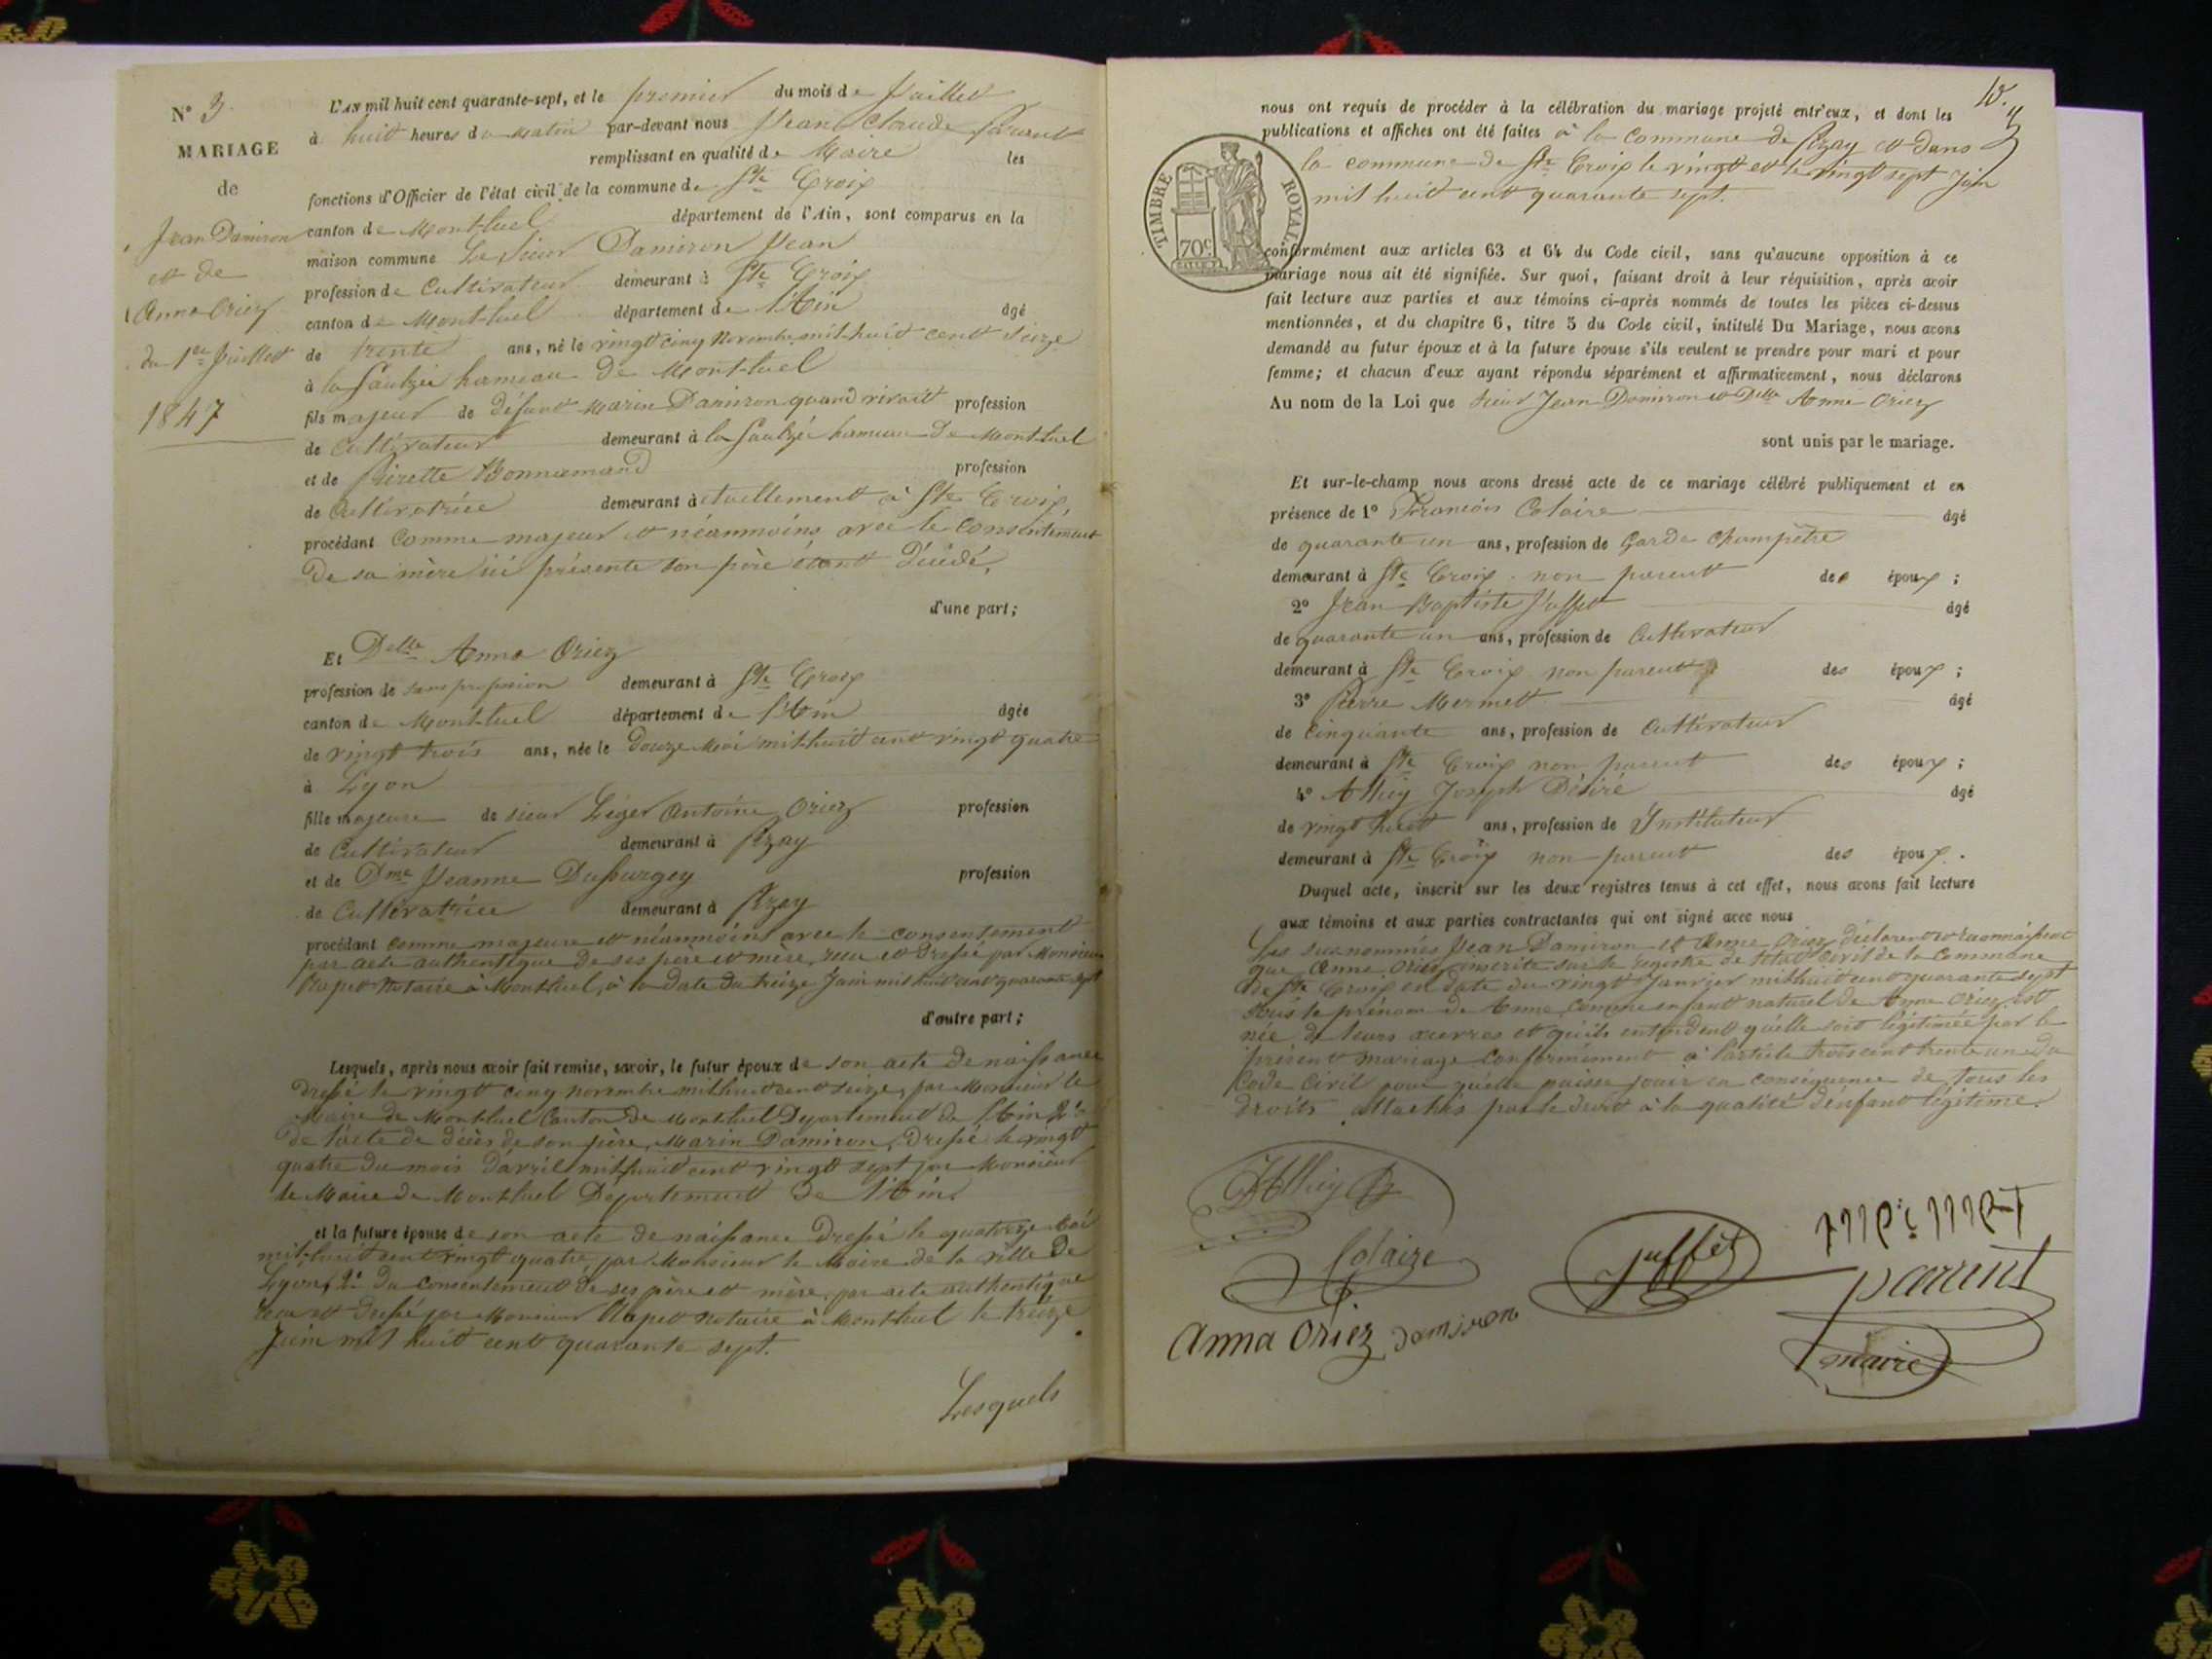 N° 3.
MARIAGE
de
Jean Damiron
et de
Anna Oriez
du 1er Juillet
1847
L'AN mil huit cent quarante-sept, et le premier du mois de Juillet
à huit heures du matin par-devant nous Jean Claude Parent
remplissant en qualité de Maire les
fonctions d'Officier de l'état civil de la commune de Ste Croix
canton de Montluel département de l'Ain, sont comparus en la
maison commune Le Sieur Damiron Jean
profession de Cultivateur demeurant à Ste Croix
canton de Montluel département de l'Ain âgé
de trente ans, né le vingt cinq Novembre mil huit cent seize
à la Saulzée hameau de Montluel
fils majeur de défunt Marin Damiron quand vivait profession
de Cultivateur demeurant à la Saulzée hameau de Montluel
et de Pierette Bonnamand profession
de Cultivatrice demeurant à ctuellement à Ste Croix,
procédant comme majeur et néanmoins avec le consentement
de sa mère ici présente son père étant décédé,
d'une part;
Et Delle Anna Oriez
profession de sans profession demeurant à Ste Croix
canton de Montluel département de l'Ain âgée
de vingt trois ans, née le douze Mai mil huit cent vingt quatre
à Lyon
fille majeure de sieur Léger Antoine Oriez profession
de Cultivateur demeurant à Pizay
et de Dme Jeanne Dufurgey profession
de Cultivatrice demeurant à Pizay
procédant comme majeure et néanmoins avec le consentement
par acte authentique de ses père et mère, reçu et dressé par Monsieur
notaire à Montluel, à la date du treize Juin mil huit cent quarante sept
d'autre part;
Lesquels, après nous avoir fait remise, savoir, le futur époux de son acte de naissance
dressé le vingt cinq novembre mil huit cent seize, par Monsieur le
Maire de Montluel Canton de Montluel Département de l'Ain 2°
de l'acte de décès de son père, Marin Damiron, dressé le vingt
quatre du mois d'avril mil huit cent vingt sept par Monsieur
le Maire de Montluel Département de l'Ain.
et la future épouse de son acte de naissance dressé le quatorze Mai
mil huit cent vingt quatre, par Monsieur le Maire de la ville de
Lyon, 2° du consentement de ses père et mère, par acte authentique
reçu et dressé par Monsieur notaire à Montluel le treize
Juin mil huit cent quarante sept.
Lesquels
10.
nous ont requis de procéder à la célébration du mariage projeté entr'eux, et dont les
publications et affiches ont été faites à la commune de Pizay et dans
la commune de Ste Croix le vingt et le vingt sept Juin
mil huit cent quarante sept.
TIMBRE ROYAL
70c
conformément aux articles 63 et 64 du Code civil, sans qu'aucune opposition à ce
mariage nous ait été signifiée. Sur quoi, faisant droit à leur réquisition, après avoir
fait lecture aux parties et aux témoins ci-après nommés de toutes les pièces ci-dessus
mentionnées, et du chapitre 6, titre 5 du Code civil, intitulé Du Mariage, nous avons
demandé au futur époux et à la future épouse s'ils veulent se prendre pour mari et pour
femme; et chacun d'eux ayant répondu séparément et affirmativement, nous déclarons
Au nom de la Loi que sieur Jean Damiron et Delle Anna Oriez
sont unis par le mariage.
Et sur-le-champ nous avons dressé acte de ce mariage célébré publiquement et en
présence de 1° François Colaire âgé
de quarante un ans, profession de Garde Champêtre
demeurant à Ste Croix non parent des époux;
2° Jean Baptiste Juffet âgé
de quarante un ans, profession de Cultivateur
demeurant à Ste Croix non parent des époux;
3° Pierre Mermet âgé
de cinquante ans, profession de Cultivateur
demeurant à Ste Croix non parent des époux;
4° Joseph Désiré âgé
de vingt huit ans, profession de Instituteur
demeurant à Ste Croix non parent des époux.
Duquel acte, inscrit sur les deux registres tenus à cet effet, nous avons fait lecture
aux témoins et aux parties contractantes qui ont signé avec nous
Les susnommés Jean Damiron et Anne Oriez déclarent et reconnaissent
que Anne Oriez inscrite sur le registre de l'état civil de la Commune
de Ste Croix en date du vingt Janvier mil huit cent quarante sept
sous le prénom de Anne comme enfant naturel de Anne Oriez, est
née de leurs œuvres et qu'ils entendent qu'elle soit légitimée par le
présent mariage conformément à l'article trois cent trente un du
Code Civil pour qu'elle puisse jouir en conséquence de tous les
droits attachés par le droit à la qualité d'enfant légitime.
Colaire
Juffet
parent
maire
Anna Oriez
Damiron